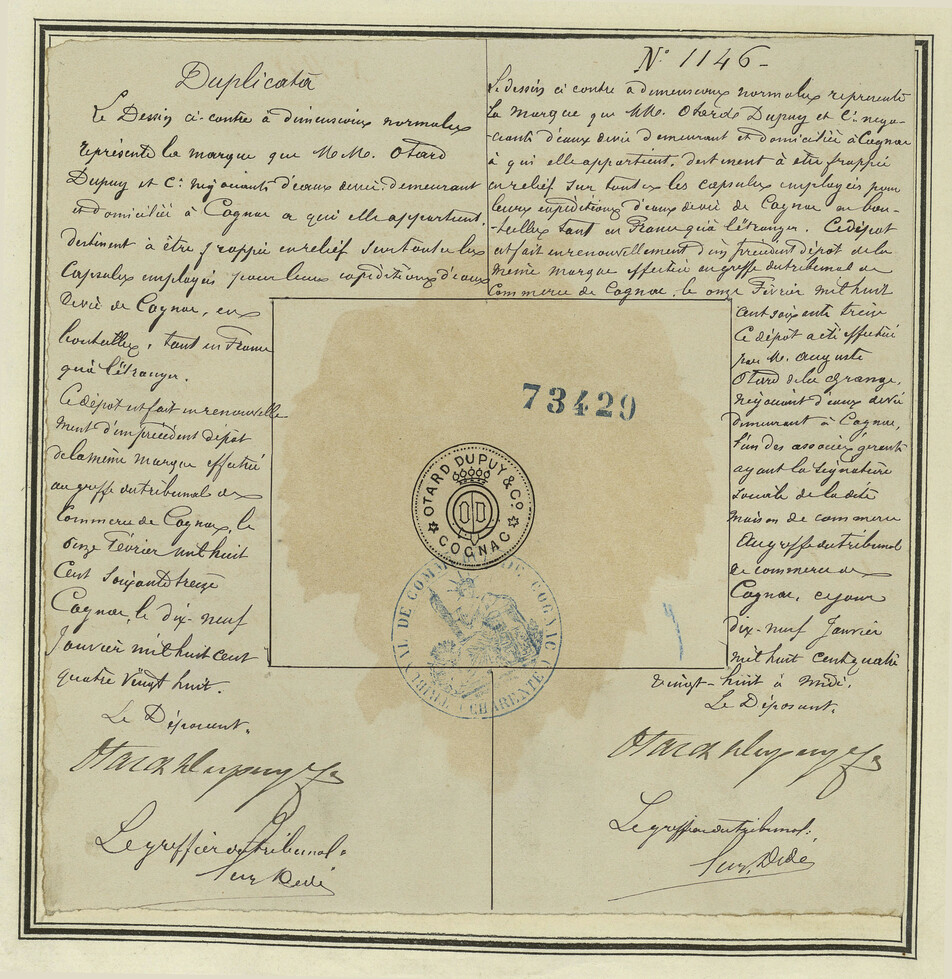 Duplicata
Le Dessin ci-contre à dimensions normales
représente la marque que M.M. Otard
Dupuy et Cie négociants d'eaux devie, demeurant
et domiciliés à Cognac a qui elle appartient,
destinent à être frappée en relief sur toutes les
Capsules employées pour leurs expéditions d'eaux
devie de Cognac, en
bouteilles, tant en France
qu'à l'étranger.
Ce dépôt est fait en renouvelle
ment d'un précédent dépôt
de la même marque effectué
au greffe du tribunal de
Commerce de Cognac, le
onze Février mil huit
Cent soixante treize
Cognac, le dix-neuf
Janvier mil huit cent
quatre vingt huit.
Le Déposant.
Otard Dupuy & Co
Le greffier du tribunal.
N° 1146-
Le dessin ci contre à dimensions normales représente
la marque que MM. Otard Dupuy et Cie négo-
ciants d'eaux devie demeurant et domiciliés à Cognac
à qui elle appartient, destinent à être frappée
en relief sur toutes les capsules employées pour
leurs expéditions d'eaux devie de Cognac en bou-
-teilles tant en France qu'à l'étranger. Ce dépôt
est fait en renouvellement d'un précédent dépôt de la
même marque effectué au greffe du tribunal de
Commerce de Cognac, le onze Février mil huit
cent soixante treize
Ce dépôt a été effectué
par M. Auguste
Otard de la Grange,
négociant d'eaux devie
demeurant à Cognac,
l'un des associés gérants
ayant la signature
sociale de la dite
maison de commerce
au greffe du tribunal
de commerce de
Cognac, ce jour
dix-neuf Janvier
mil huit cent quatre
vingt-huit à midi.
Le Déposant.
Otard Dupuy & Co
Le greffier du tribunal.
73429
OTARD DUPUY & Co
OD
COGNAC
TRIBUNAL DE COMMERCE DE COGNAC (CHARENTE)